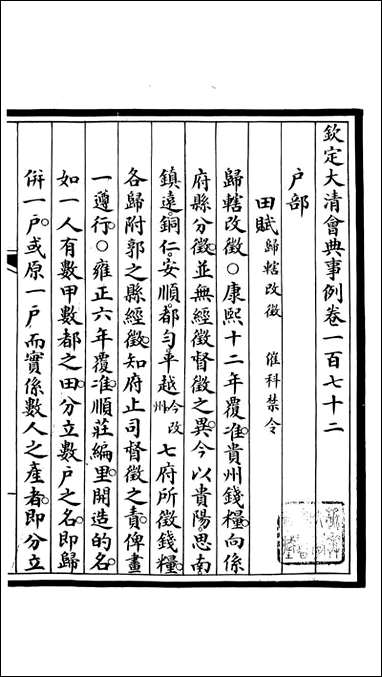 欽定大清會典事例卷一百七十二
户部
田賦歸轄改徵 催科禁令
歸轄改徵○康熙十二年覆准貴州錢糧向係
府縣分徵並無經徵督徵之異今以貴陽思南
鎮遠銅仁安順都勻平越今改州七府所徵錢糧
各歸附郭之縣經徵知府止司督徵之責俾畫
一遵行○雍正六年覆准順莊編里開造的名
如一人有數甲數都之田分立數户之名即歸
併一户或原一户而實係數人之產者即分立